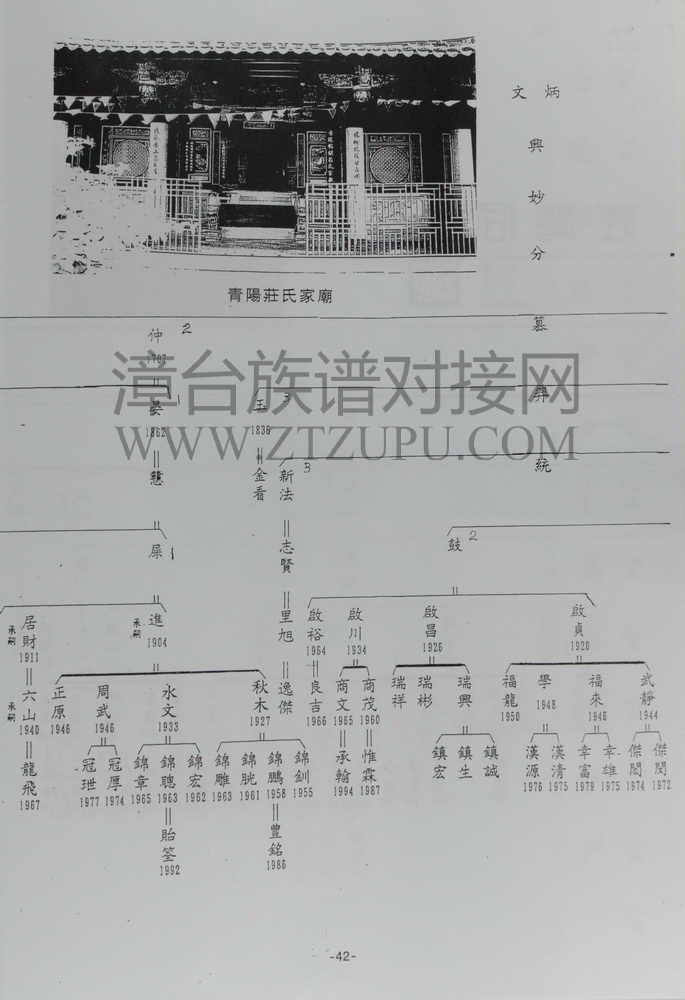 文 炳
興
妙
分
青陽莊氏家廟
仲 2
1797
墓
晏 1
1862
玉 3
1836
昪
懸
金看
新法 3
統
屎 1
志賢
鼓 2
居財
承嗣
1911
進
承嗣
1904
里旭
啟裕
1964
啟川
1934
啟昌
1926
啟貞
1920
六山
承嗣
1940
正原
1946
周武
1946
水文
1933
秋木
1927
逸傑
良吉
1966
商文
1965
商茂
1960
瑞祥
瑞彬
瑞興
福龍
1950
學
1948
福來
1946
武靜
1944
龍飛
1967
冠玴
1977
冠厚
1974
錦章
1965
錦聰
1963
錦宏
1962
錦雕
1963
錦胱
1961
錦鵬
1958
錦釧
1955
承翰
1994
惟霖
1987
鎮宏
鎮生
鎮誠
漢源
1976
漢清
1975
幸富
1979
幸雄
1975
傑閣
1974
傑閔
1972
貽筌
1992
豊銘
1986
漳台族谱对接网
WWW.ZTZUPU.COM
-42-